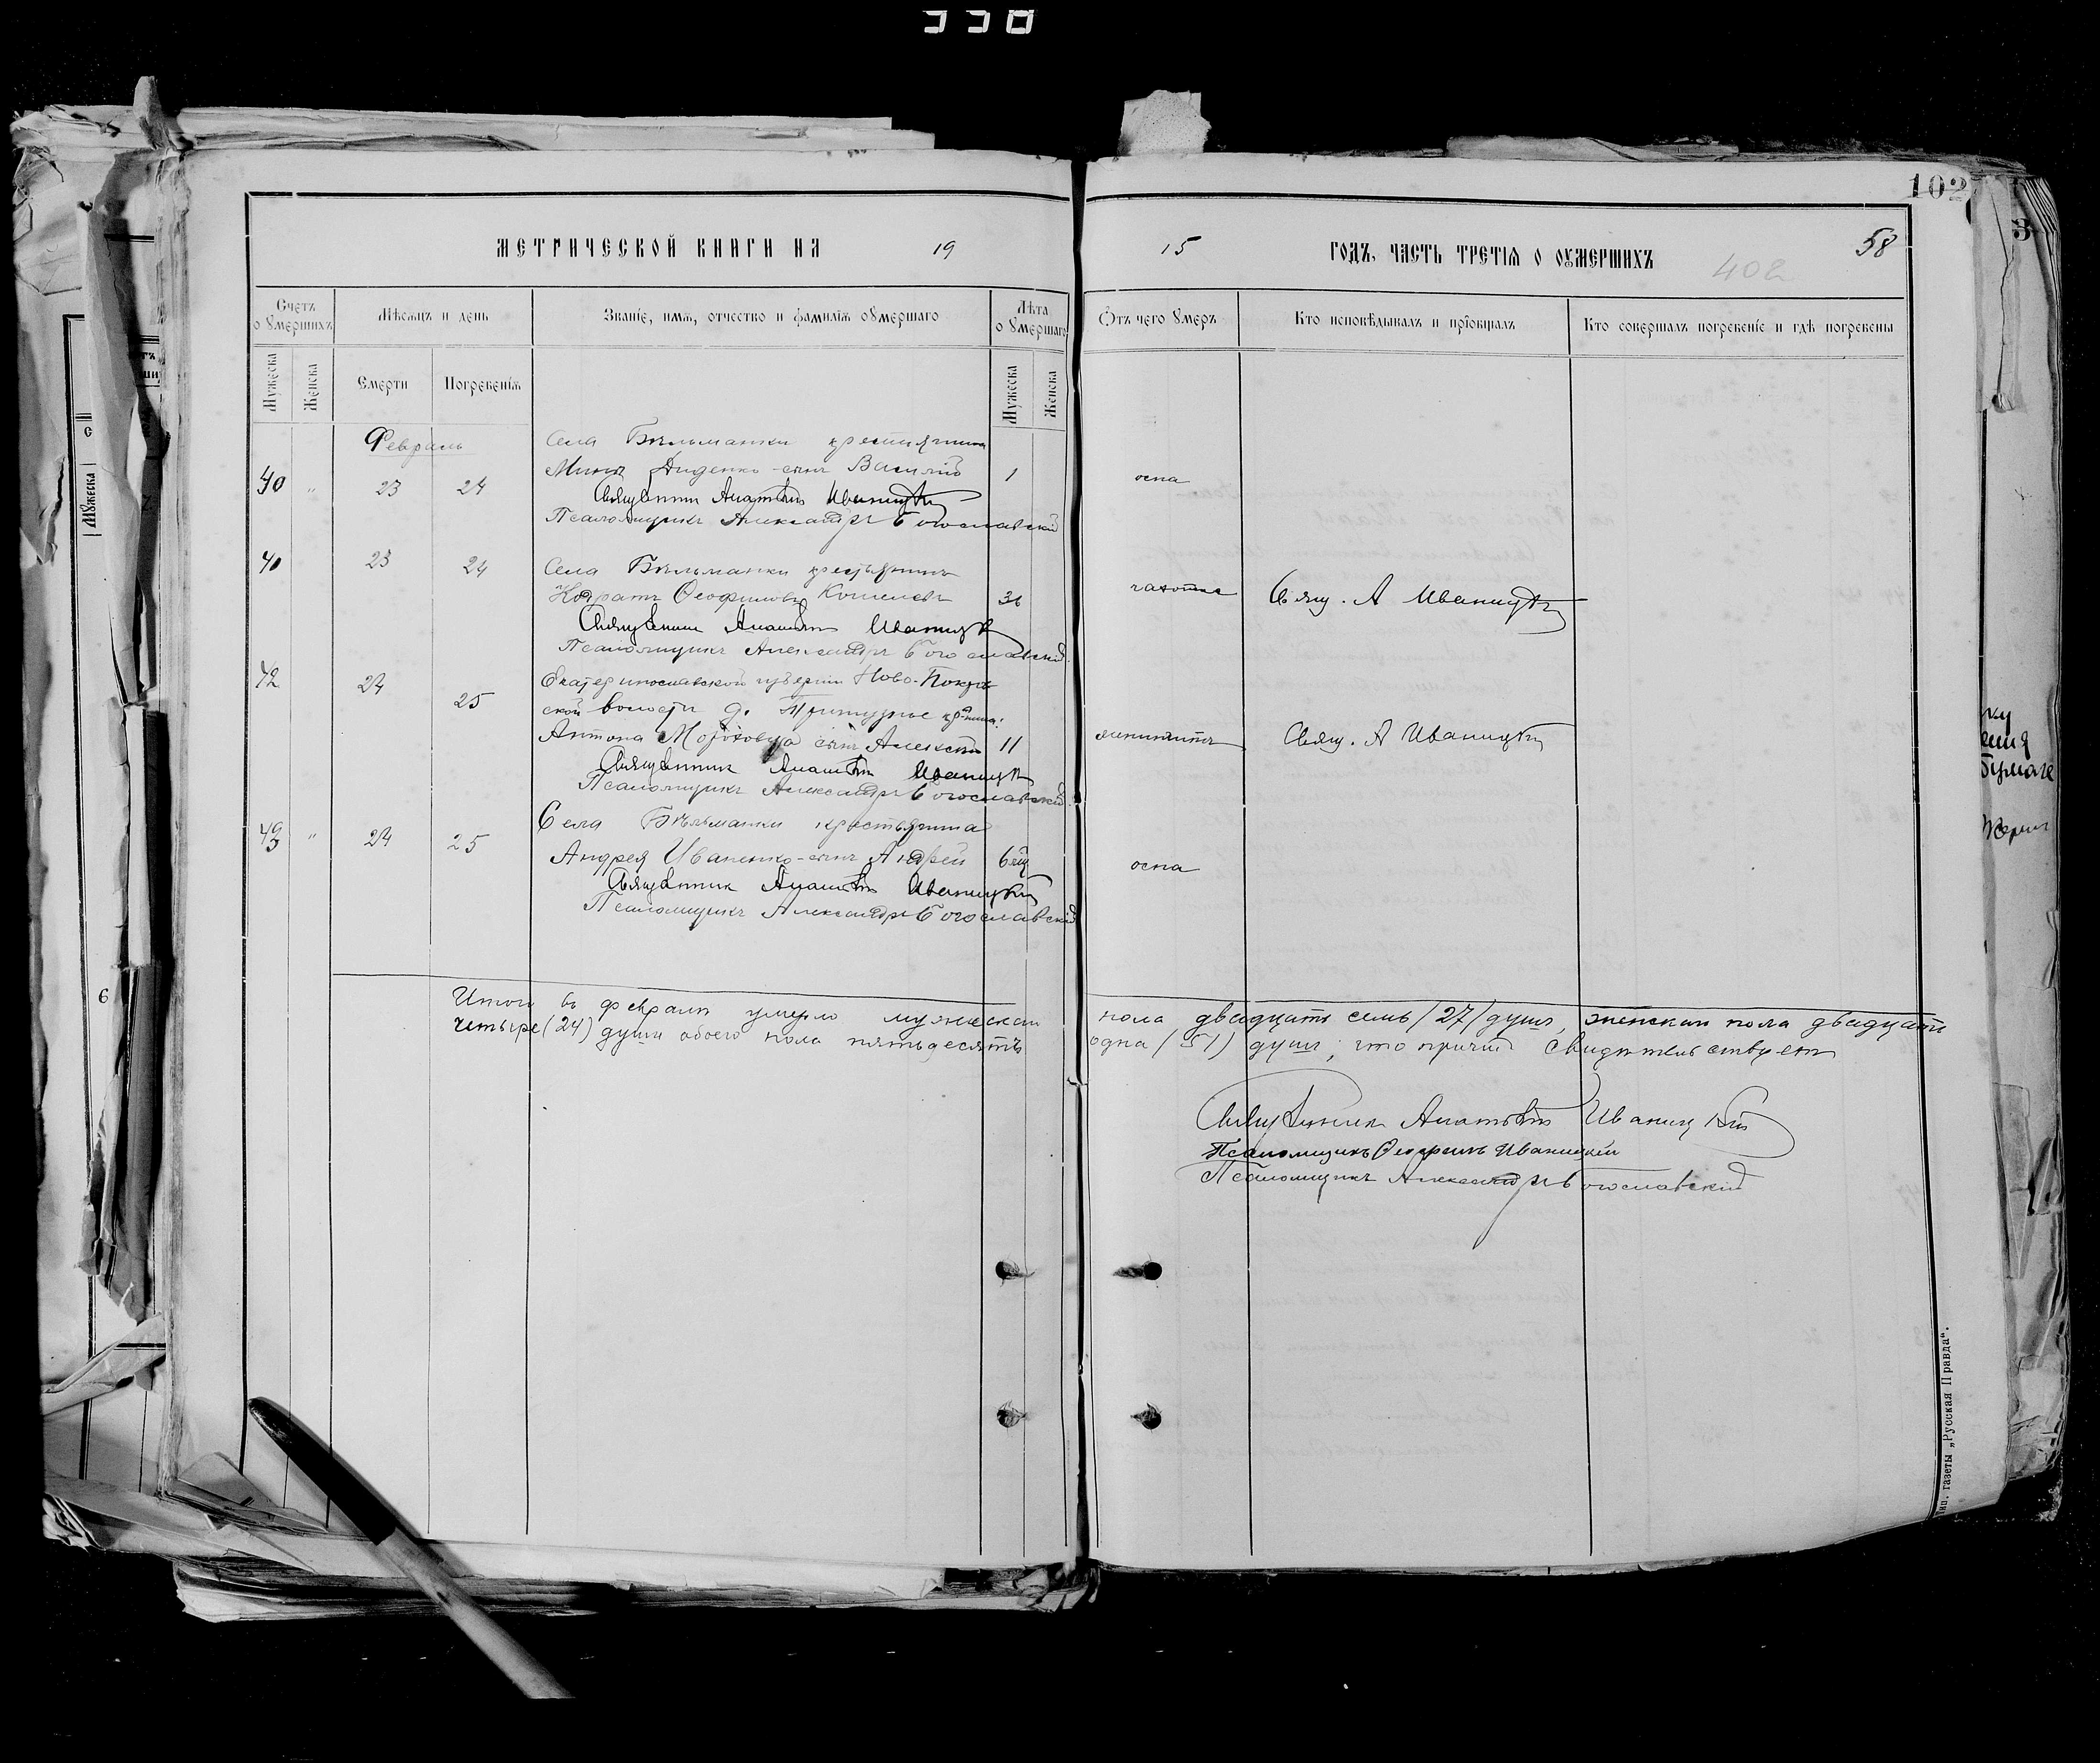 330
102
МЕТРИЧЕСКОЙ КНИГИ НА 19
15 ГОДЪ, ЧАСТЬ ТРЕТІѦ О ОУМЕРШИХЪ
58
402
Счетъ оумершихъ
Мѣсяцъ и день
Званіе, имѧ, отчество и фамиліѧ оумершаго
Лѣта оумершаго
Отъ чего умеръ
Кто исповѣдывалъ и пріобщалъ
Кто совершалъ погребеніе и гдѣ погребены
Мужеска
Женска
Смерти
Погребеніѧ
Мужеска
Женска
Февраль
Села Бѣльманки крестьянина
40 " 23 24 Мины Диденко сынъ Василій 1 оспа
Священникъ Анатолій Иваницкій
Псаломщикъ Александръ Богославскій
40 23 24 Села Бѣльманки крестьянинъ
Кондратъ Феофиловъ Кошелевъ 36 чахотка Свящ. А Иваницкій
Священникъ Анатолій Иваницкій
Псаломщикъ Александръ Богославскій
42 24 25 Екатеринославской губерніи Ново-Покров
ской волости д.
Антона сынъ Алексѣй 11 менингитъ Свящ. А Иваницкій
Священникъ Анатолій Иваницкій
Псаломщикъ Александръ Богославскій
43 " 24 25 Села Бѣльманки крестьянина
Андрея Иваненко-сынъ Андрей 6 мѣс оспа
Священникъ Анатолій Иваницкій
Псаломщикъ Александръ Богославскій
Итого въ февралѣ умерло мужескаго пола двадцать семь /27/ душъ, женскаго пола двадцать
четыре (24) души обоего пола пятьдесятъ одна (51) душа, что причтъ свидѣтельствуетъ
Священникъ Анатолій Иваницкій
Псаломщикъ Феофилъ Иваницкій
Псаломщикъ Александръ Богославскій
Тип. газеты „Русская Правда“.